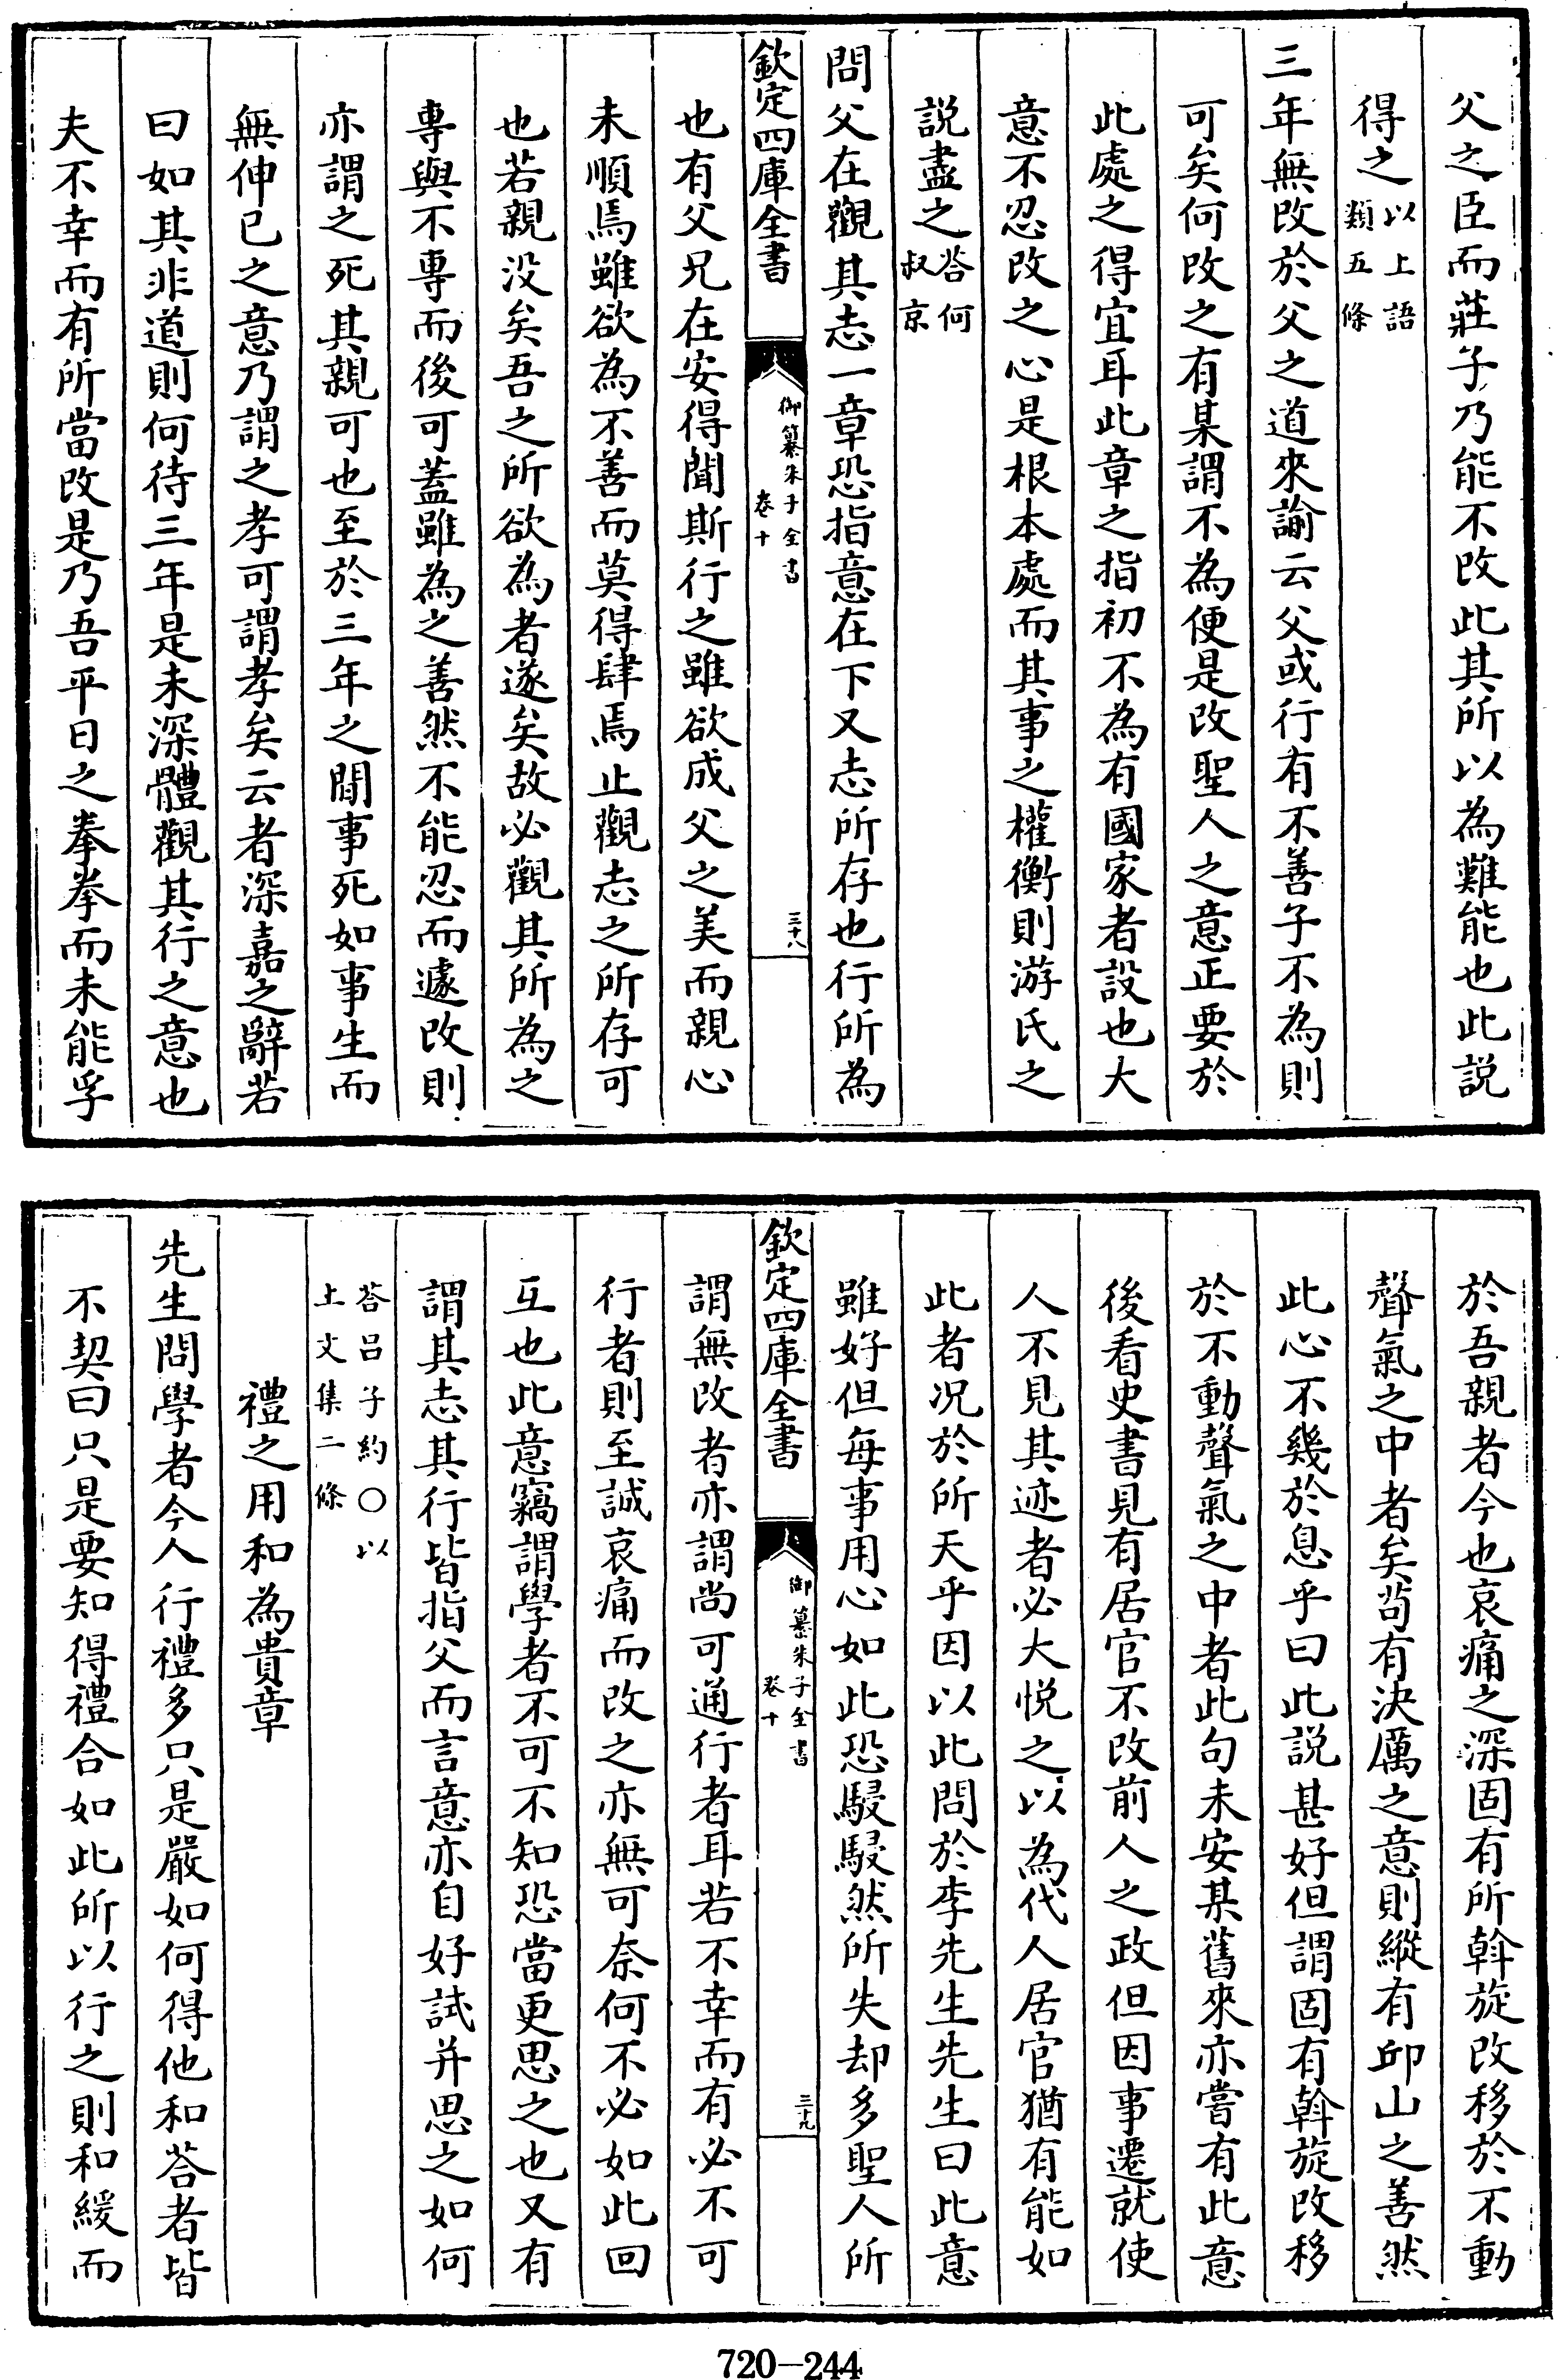 父之臣而莊子乃能不改此其所以為難能也此説
得之以上語類五條
三年無改於父之道來諭云父或行有不善子不為則
可矣何改之有某謂不為便是改聖人之意正要於
此處之得宜耳此章之指初不為有國家者設也大
意不忍改之心是根本處而其事之權衡則游氏之
説盡之荅何叔京
問父在觀其志一章恐指意在下又志所存也行所為
欽定四庫全書
御纂朱子全書
卷十
三十八
也有父兄在安得聞斯行之雖欲成父之美而親心
未順焉雖欲為不善而莫得肆焉止觀志之所存可
也若親没矣吾之所欲為者遂矣故必觀其所為之
專與不專而後可蓋雖為之善然不能忍而遽改則
亦謂之死其親可也至於三年之間事死如事生而
無伸已之意乃謂之孝可謂孝矣云者深嘉之辭若
曰如其非道則何待三年是未深體觀其行之意也
夫不幸而有所當改是乃吾平日之拳拳而未能孚
於吾親者今也哀痛之深固有所斡旋改移於不動
聲氣之中者矣茍有決厲之意則縱有邱山之善然
此心不幾於息乎曰此説甚好但謂固有斡旋改移
於不動聲氣之中者此句未安某舊來亦嘗有此意
後看史書見有居官不改前人之政但因事遷就使
人不見其迹者必大悦之以為代人居官猶有能如
此者况於所天乎因以此問於李先生先生曰此意
雖好但每事用心如此恐駸駸然所失却多聖人所
欽定四庫全書
御纂朱子全書
卷十
三十九
謂無改者亦謂尚可通行者耳若不幸而有必不可
行者則至誠哀痛而改之亦無可奈何不必如此回
互也此意竊謂學者不可不知恐當更思之也又有
謂其志其行皆指父而言意亦自好試并思之如何
荅吕子約○以上文集二條
禮之用和為貴章
先生問學者今人行禮多只是嚴如何得他和荅者皆
不契曰只是要知得禮合如此所以行之則和緩而
720-244